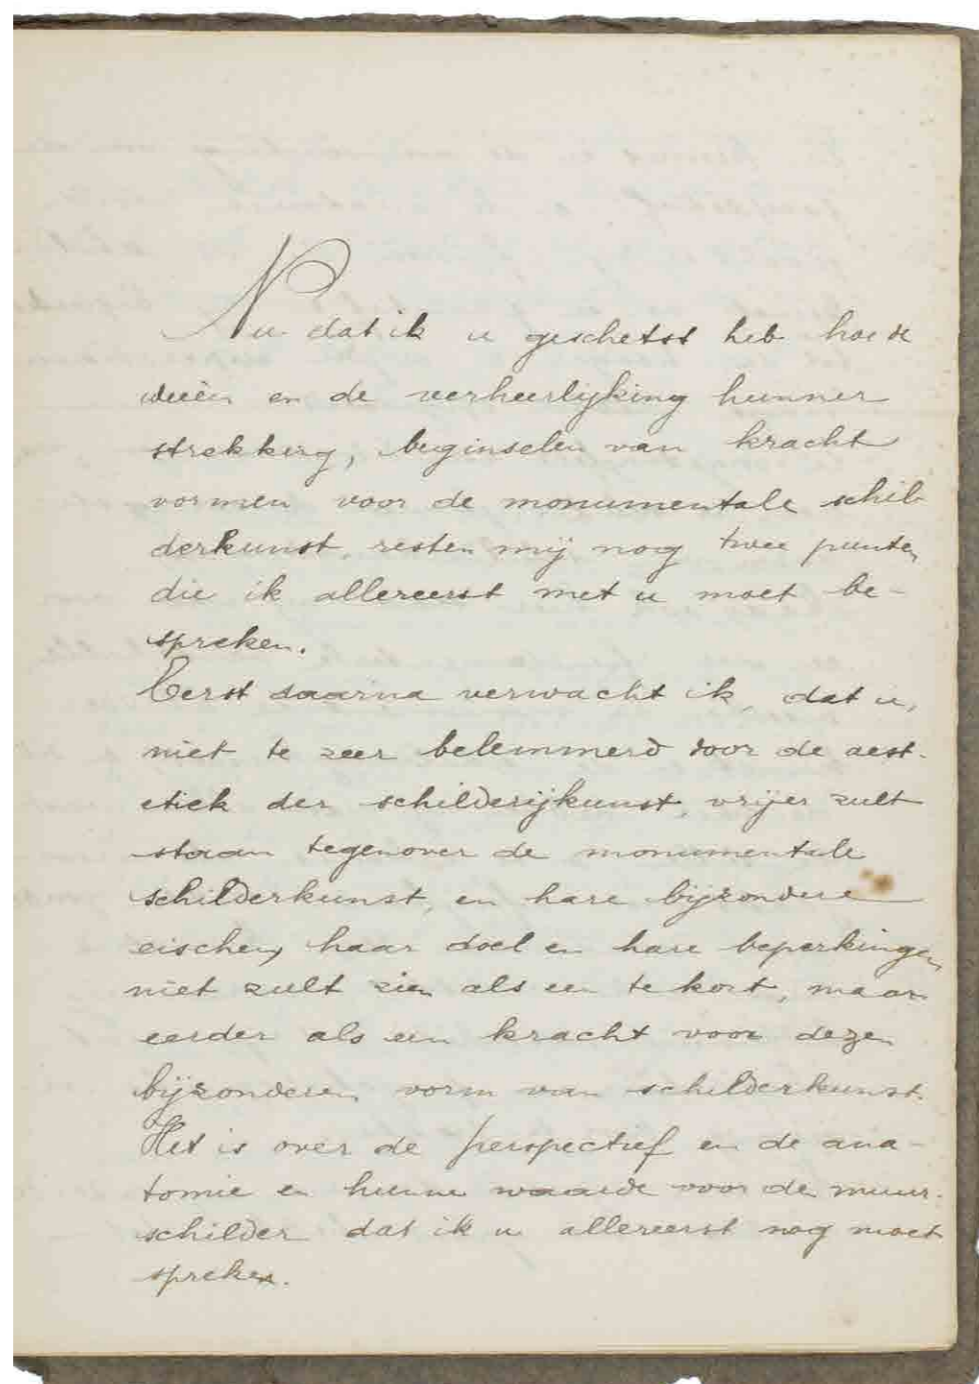 Nu dat ik u geschetst heb hoe de
ideeën en de verheerlijking hunner
strekking, beginselen van kracht
vormen voor de monumentale schil-
derkunst, resten mij nog twee punten
die ik allereerst met u moet be-
spreken.
Eerst daarna verwacht ik, dat u,
niet te zeer belemmerd door de aest-
etiek der schilderijkunst, vrijer zult
staan tegenover de monumentale
schilderkunst, en hare bijzondere
eischen, haar doel en hare beperkingen
niet zult zien als een te kort, maar
eerder als een kracht voor dezen
bijzonderen vorm van schilderkunst.
Het is over de perspectief en de ana-
tomie en hunne waarde voor den muur-
schilder dat ik u allereerst nog moet
spreken.